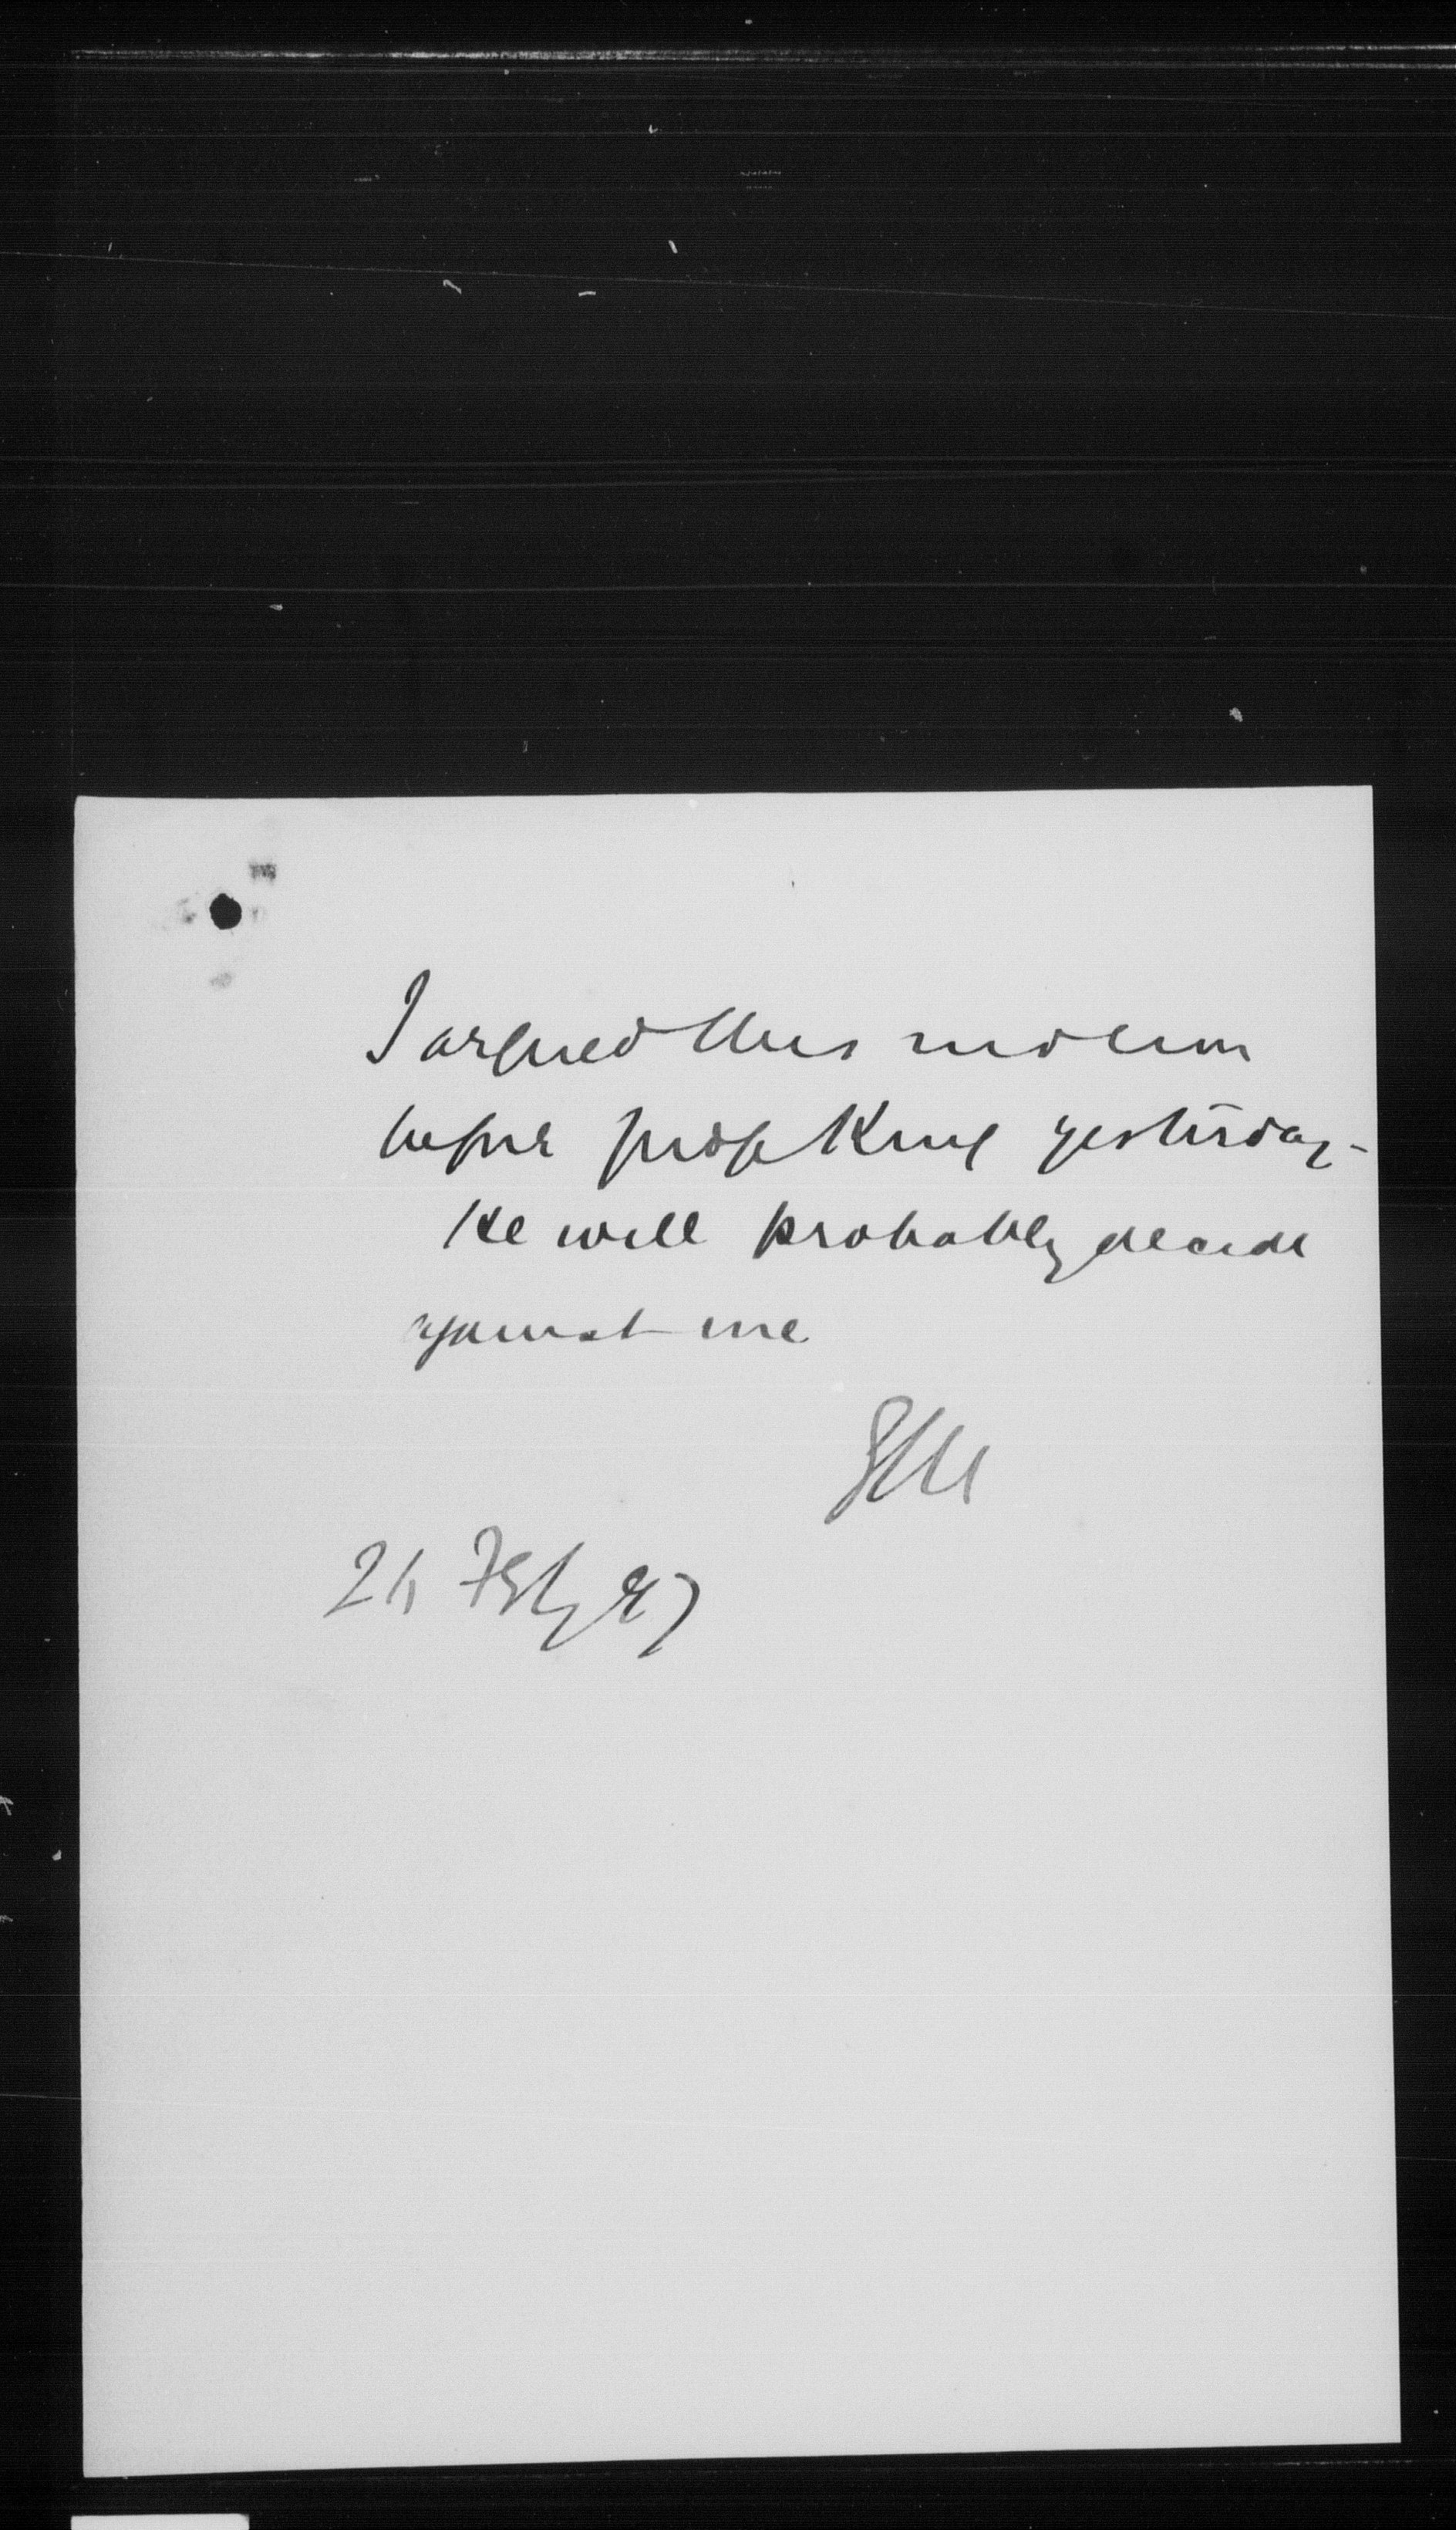 I argued this motion
before Judge King yesterday -
He will probably decide
against me
24 Feby 27